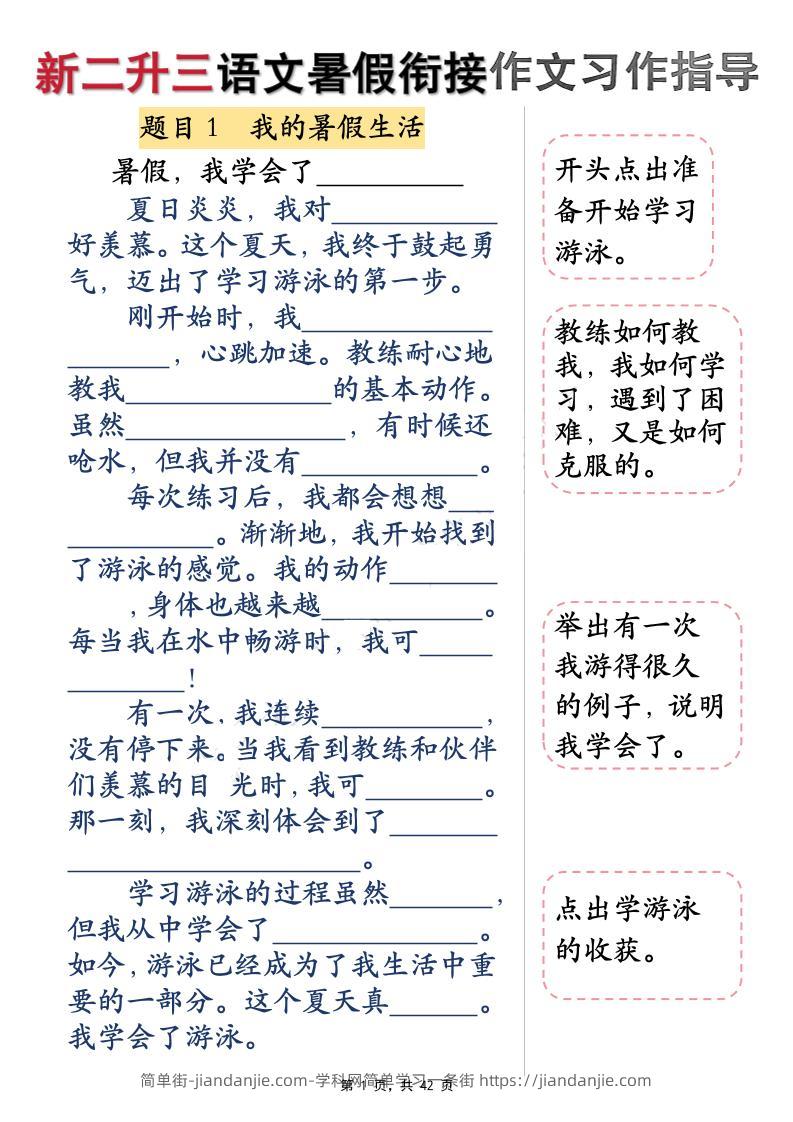 新二升三语文暑假衔接作文习作指导
题目1 我的暑假生活
暑假，我学会了__________
夏日炎炎，我对___________
好羡慕。这个夏天，我终于鼓起勇
气，迈出了学习游泳的第一步。
刚开始时，我_____________
_______，心跳加速。教练耐心地
教我______________的基本动作。
虽然_______________，有时候还
呛水，但我并没有____________。
每次练习后，我都会想想___
__________。渐渐地，我开始找到
了游泳的感觉。我的动作_______
，身体也越来越___________。
每当我在水中畅游时，我可_____
________！
有一次，我连续___________，
没有停下来。当我看到教练和伙伴
们羡慕的目 光时，我可________。
那一刻，我深刻体会到了_______
____________________。
学习游泳的过程虽然_______，
但我从中学会了______________。
如今，游泳已经成为了我生活中重
要的一部分。这个夏天真______。
我学会了游泳。
开头点出准
备开始学习
游泳。
教练如何教
我，我如何学
习，遇到了困
难，又是如何
克服的。
举出有一次
我游得很久
的例子，说明
我学会了。
点出学游泳
的收获。
简单街-jiandanjie.com-学科网简单学习一条街 https://jiandanjie.com
第 1 页，共 42 页